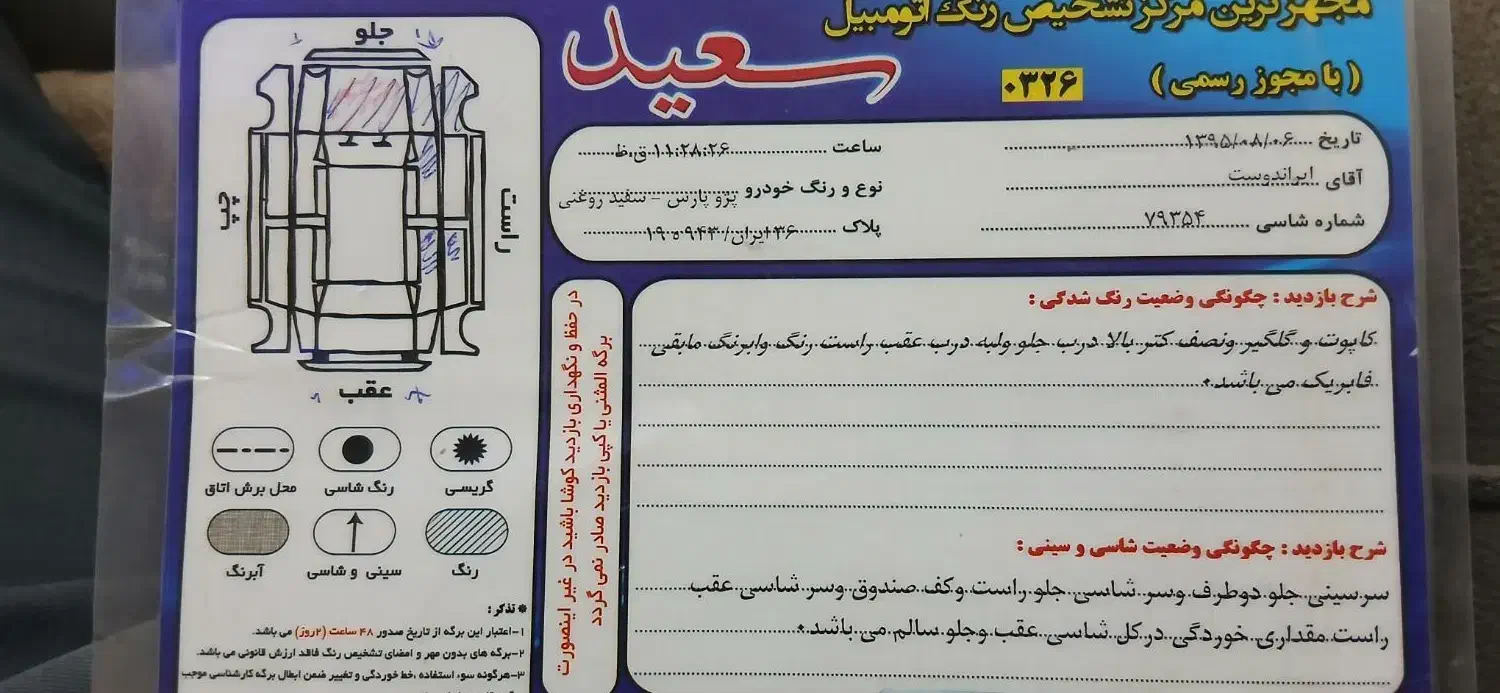 مجهزترین مرکز تشخیص رنگ اتومبیل
سعید
(با مجوز رسمی)
۰۳۲۶
تاریخ ۱۳۹۵/۰۸/۰۶
ساعت ۱۱:۲۸:۲۶ ق.ظ
آقای ایراندوست
نوع و رنگ خودرو پژو پارس - سفید روغنی
شماره شاسی ۷۹۳۵۴
پلاک ۳۶ ایران/۹۴۳ ه ۱۹
شرح بازدید : چگونگی وضعیت رنگ شدگی :
کاپوت و گلگیر ونصف کتر بالا درب جلو ولبه درب عقب راست رنگ وابرنگ مابقی
فابریک می باشد.
شرح بازدید : چگونگی وضعیت شاسی و سینی :
سر سینی جلو دوطرف وسر شاسی جلو راست وکف صندوق وسر شاسی عقب
راست مقداری خوردگی در کل شاسی عقب وجلو سالم می باشد.
در حفظ و نگهداری بازدید کوشا باشید در غیر اینصورت
برگه المثنی یا کپی بازدید صادر نمی گردد
جلو
راست
چپ
عقب
گریسی
رنگ شاسی
محل برش اتاق
رنگ
سینی و شاسی
آبرنگ
※ تذکر :
۱-اعتبار این برگه از تاریخ صدور ۴۸ ساعت (۲روز) می باشد.
۲-برگه های بدون مهر و امضای تشخیص رنگ فاقد ارزش قانونی می باشد.
۳-هرگونه سوء استفاده ،خط خوردگی و تغییر ضمن ابطال برگه کارشناسی موجب